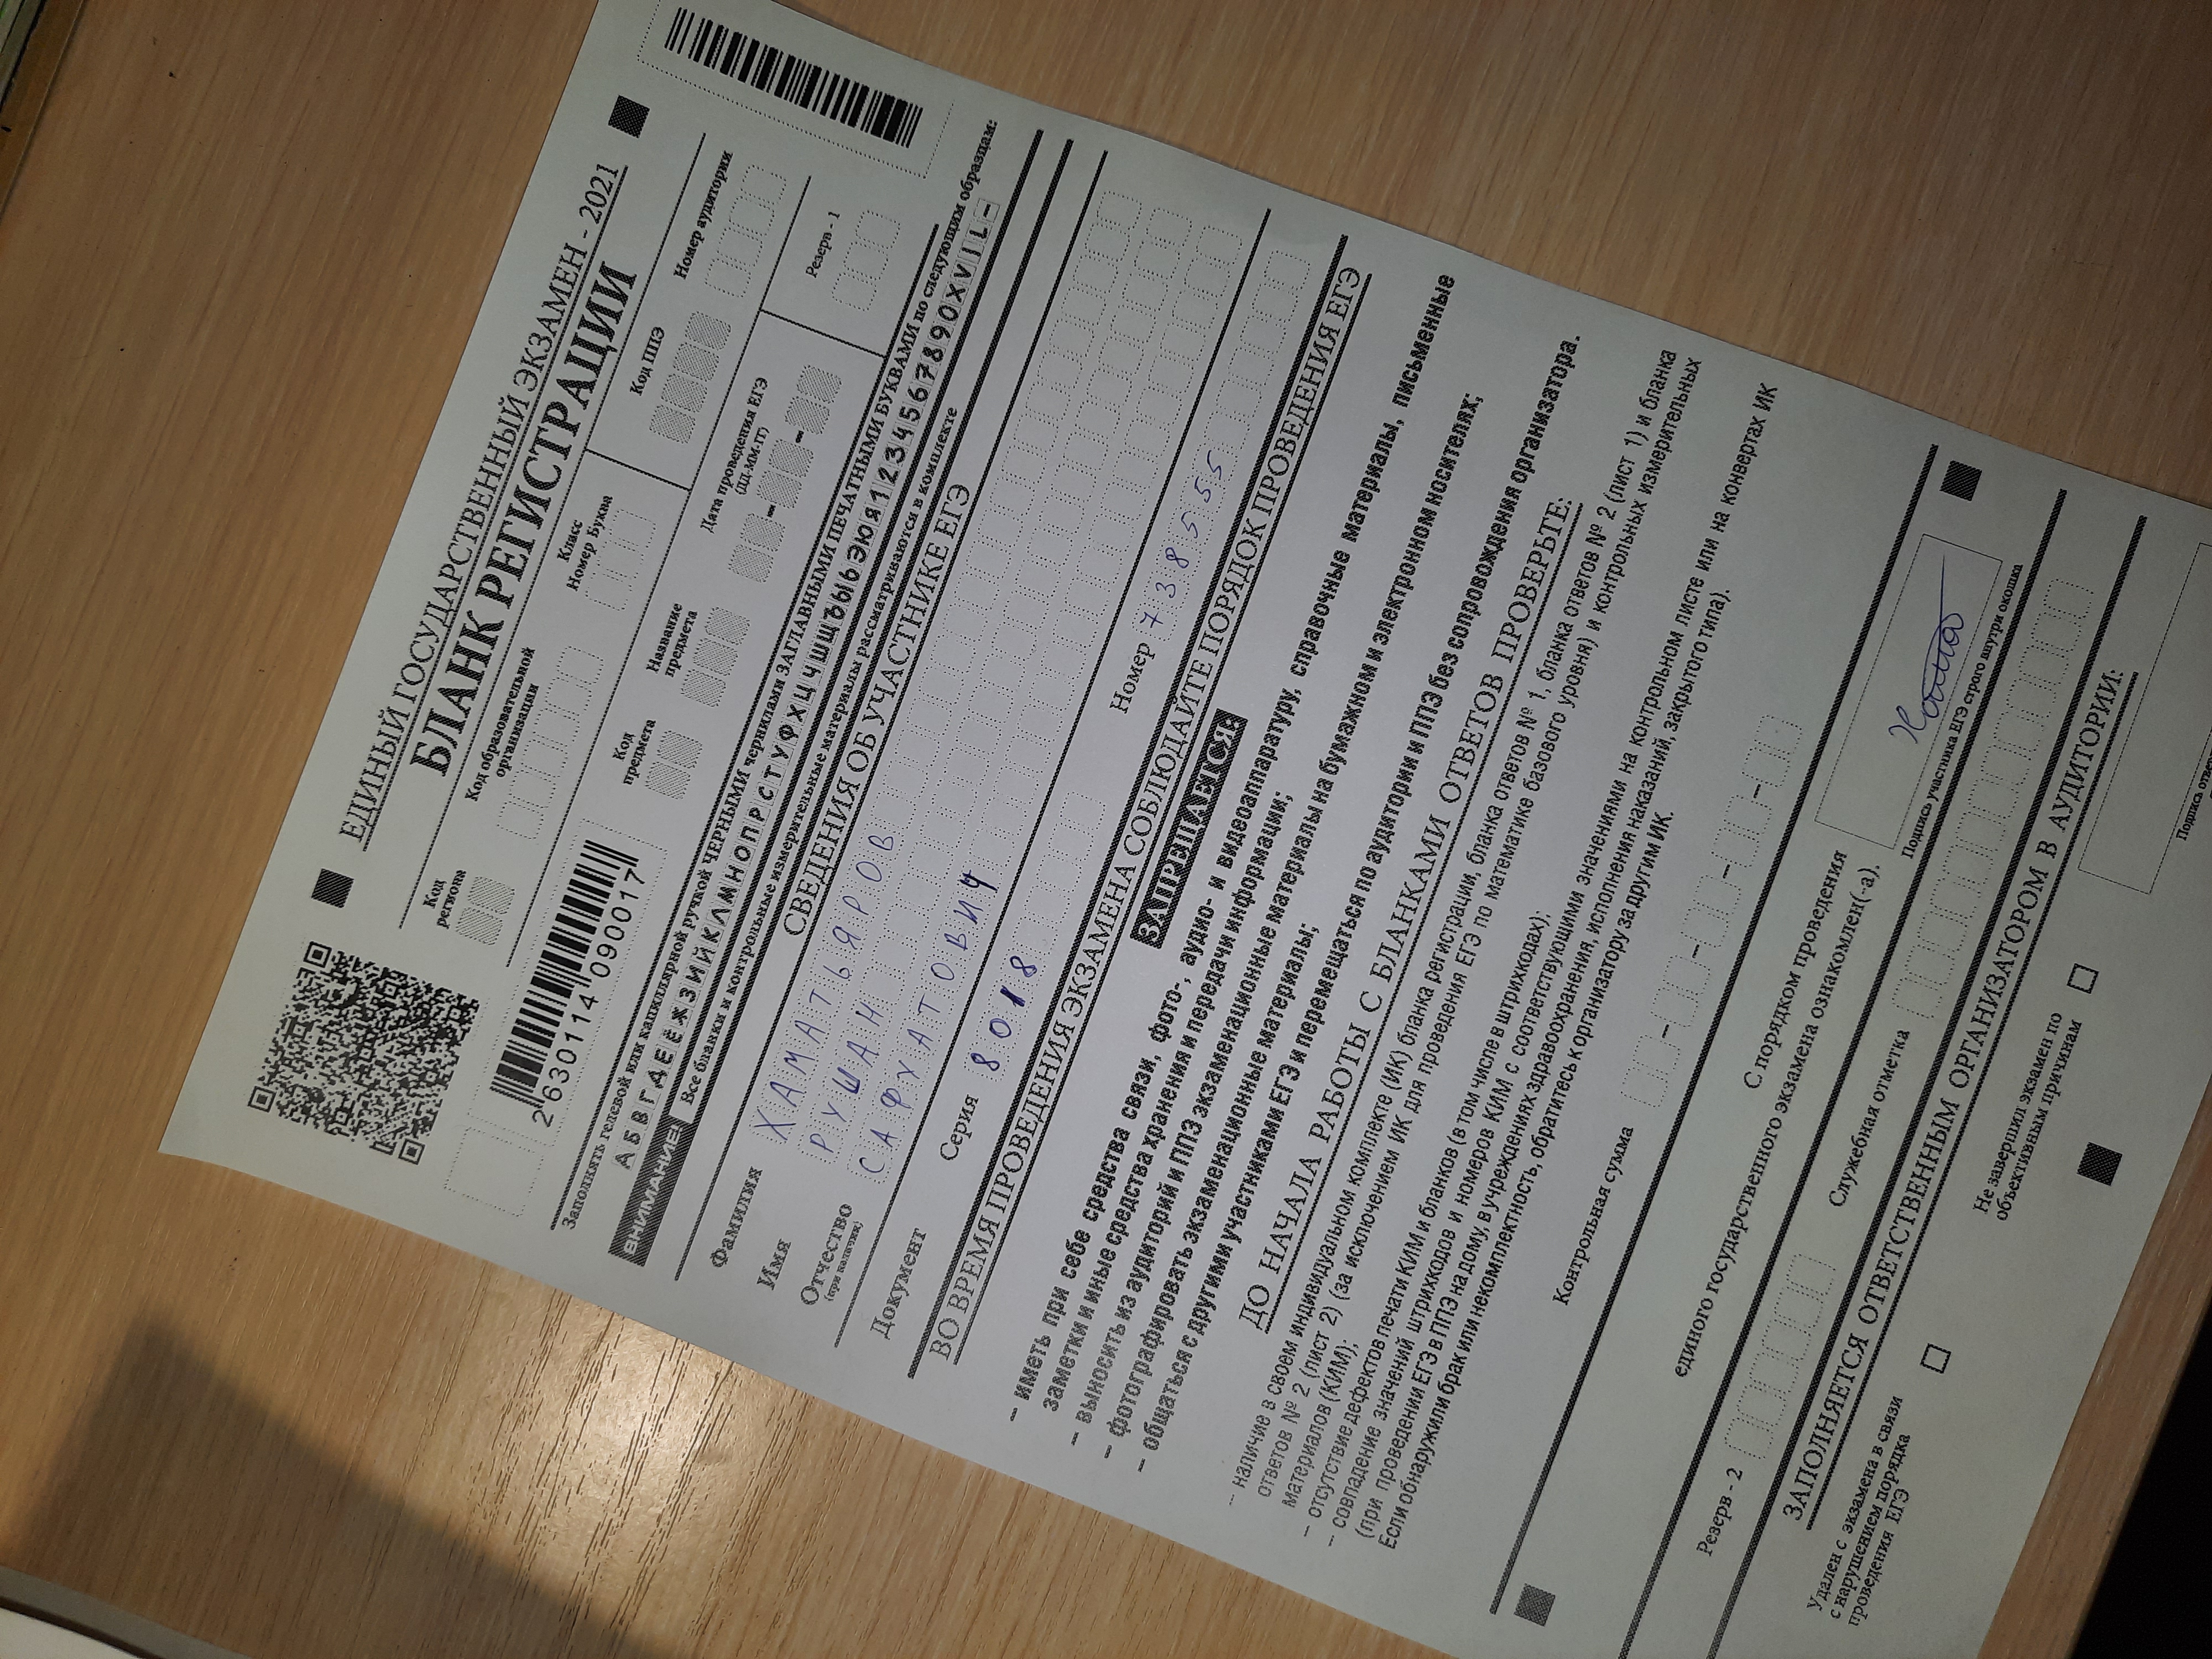 ЕДИНЫЙ ГОСУДАРСТВЕННЫЙ ЭКЗАМЕН - 2021
БЛАНК РЕГИСТРАЦИИ
Код региона
Код образовательной организации
Класс
Номер Буква
Код ППЭ
Номер аудитории
2 630114 090017
Код предмета
Название предмета
Дата проведения ЕГЭ
(ДД-ММ-ГГ)
Резерв - 1
Заполнять гелевой или капиллярной ручкой ЧЕРНЫМИ чернилами ЗАГЛАВНЫМИ ПЕЧАТНЫМИ БУКВАМИ по следующим образцам:
АБВГДЕЁЖЗИЙКЛМНОПРСТУФХЦЧШЩЪЫЬЭЮЯ1234567890XVIL-
ВНИМАНИЕ! Все бланки и контрольные измерительные материалы рассматриваются в комплекте
СВЕДЕНИЯ ОБ УЧАСТНИКЕ ЕГЭ
Фамилия ХАМАТЬЯРОВ
Имя РУШАН
Отчество САФУАТОВИЧ
(при наличии)
Документ Серия 8018 Номер 738555
ВО ВРЕМЯ ПРОВЕДЕНИЯ ЭКЗАМЕНА СОБЛЮДАЙТЕ ПОРЯДОК ПРОВЕДЕНИЯ ЕГЭ
ЗАПРЕЩАЕТСЯ:
– иметь при себе средства связи, фото-, аудио- и видеоаппаратуру, справочные материалы, письменные
заметки и иные средства хранения и передачи информации;
– выносить из аудиторий и ППЭ экзаменационные материалы на бумажном и электронном носителях;
– фотографировать экзаменационные материалы;
– общаться с другими участниками ЕГЭ и перемещаться по аудитории и ППЭ без сопровождения организатора.
ДО НАЧАЛА РАБОТЫ С БЛАНКАМИ ОТВЕТОВ ПРОВЕРЬТЕ:
– наличие в своем индивидуальном комплекте (ИК) бланка регистрации, бланка ответов № 1, бланка ответов № 2 (лист 1) и бланка
ответов № 2 (лист 2) (за исключением ИК для проведения ЕГЭ по математике базового уровня) и контрольных измерительных
материалов (КИМ);
– отсутствие дефектов печати КИМ и бланков (в том числе в штрихкодах);
– совпадение значений штрихкодов и номеров КИМ с соответствующими значениями на контрольном листе или на конвертах ИК
(при проведении ЕГЭ в ППЭ на дому, в учреждениях здравоохранения, исполнения наказаний, закрытого типа).
Если обнаружили брак или некомплектность, обратитесь к организатору за другим ИК.
Контрольная сумма
С порядком проведения
единого государственного экзамена ознакомлен(-а).
Подпись участника ЕГЭ строго внутри окошка
Резерв - 2
Служебная отметка
ЗАПОЛНЯЕТСЯ ОТВЕТСТВЕННЫМ ОРГАНИЗАТОРОМ В АУДИТОРИИ:
Удален с экзамена в связи
с нарушением порядка
проведения ЕГЭ
Не завершил экзамен по
объективным причинам
Подпись